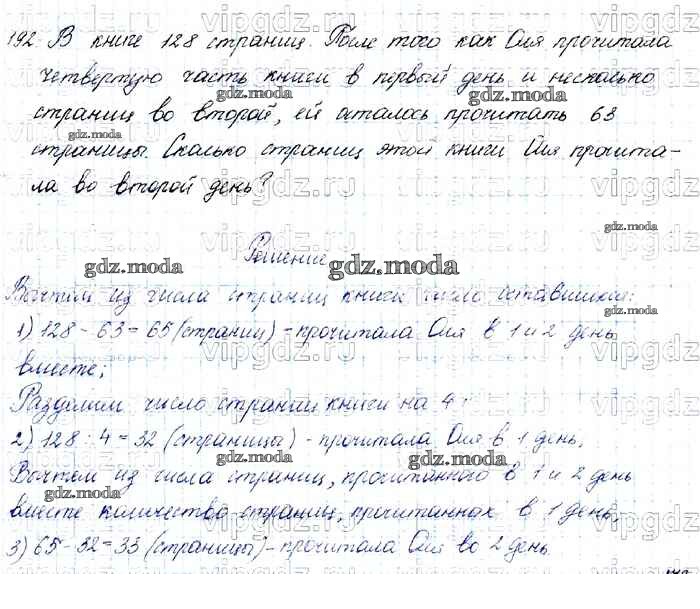 192. В книге 128 страниц. После того как Оля прочитала
четвертую часть книги в первый день и несколько
страниц во второй, ей осталось прочитать 63
страницы. Сколько страниц этой книги Оля прочита-
ла во второй день?
Решение
Вычтем из числа страниц книги число оставшихся:
1) 128 - 63 = 65 (страниц) - прочитала Оля в 1 и 2 день
вместе;
Разделим число страниц книги на 4:
2) 128 : 4 = 32 (страницы) - прочитала Оля в 1 день.
Вычтем из числа страниц, прочитанного в 1 и 2 день
вместе количество страниц, прочитанных в 1 день;
3) 65 - 32 = 33 (страницы) - прочитала Оля во 2 день.
vipgdz.ru
gdz.moda